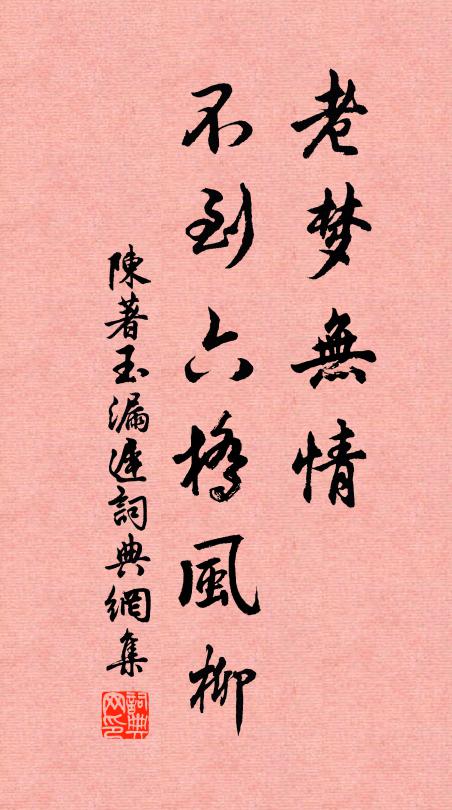 老梦無情
不到六橋風柳
陳著玉漏遲詞典網集
詞典网印